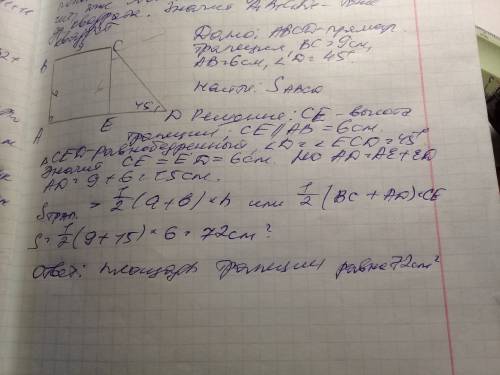 квадрат. Значит ABCD -
Дано: ABCD - прямоуг.
трапеция, BC = 9см,
AB = 6см, ∠D = 45°
Найти: S ABCD
B
C
45°
A
E
D
Решение: CE - высота
трапеции; CE ∥ AB = 6см.
△CED - равнобедренный, ∠D = ∠ECD = 45°
Значит CE = ED = 6см. Но AD = AE + ED
AD = 9 + 6 = 15см.
Sтрап. = 1/2 (a + b) × h или 1/2 (BC + AD) × CE
S = 1/2 (9 + 15) × 6 = 72см²
Ответ: площадь трапеции равна 72см²